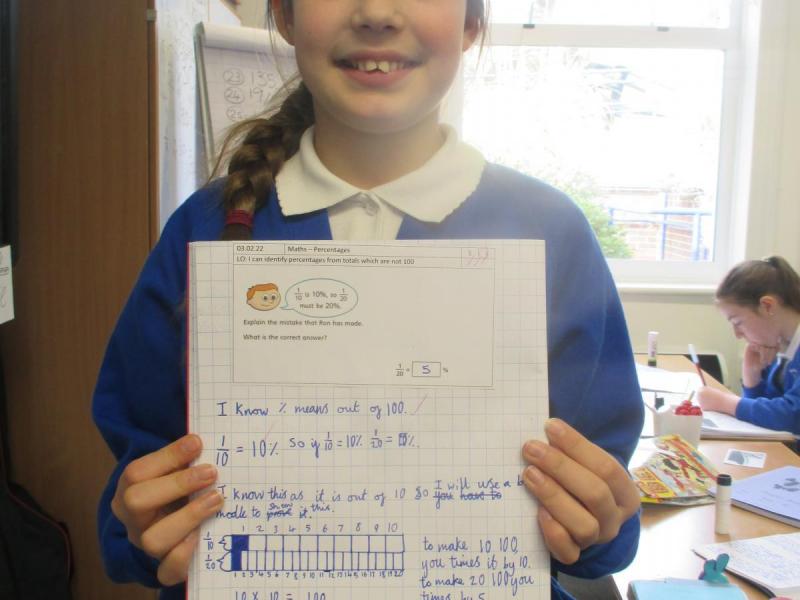 23 135
24 19
25
03.02.22 Maths – Percentages
LO: I can identify percentages from totals which are not 100
1/10 is 10%, so 1/20
must be 20%.
Explain the mistake that Ron has made.
What is the correct answer?
1/20 = 5 %
I know % means out of 100.
1/10 = 10% So if 1/10 = 10% 1/20 = 5%.
I know this as it is out of 10 so I will use a b
you have to
modle to show it this.
1 2 3 4 5 6 7 8 9 10
1/10
1/20
1 2 3 4 5 6 7 8 9 10 11 12 13 14 15 16 17 18 19 20
to make 10 100
you times it by 10.
to make 20 100 you
times by 5
10 x 10 = 100